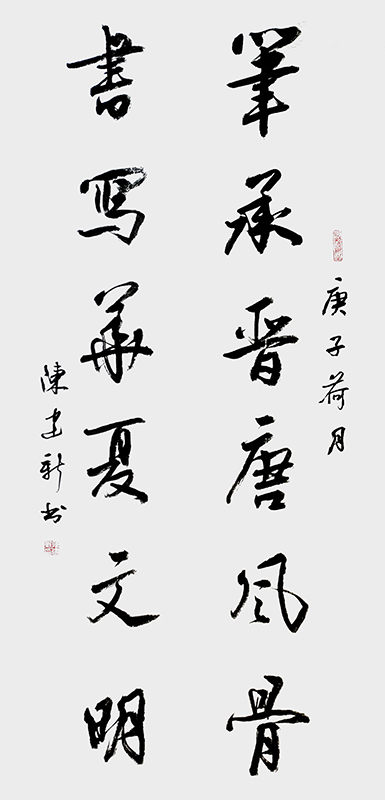 庚子荷月
筆承晋唐风骨
書写華夏文明
陳建新书